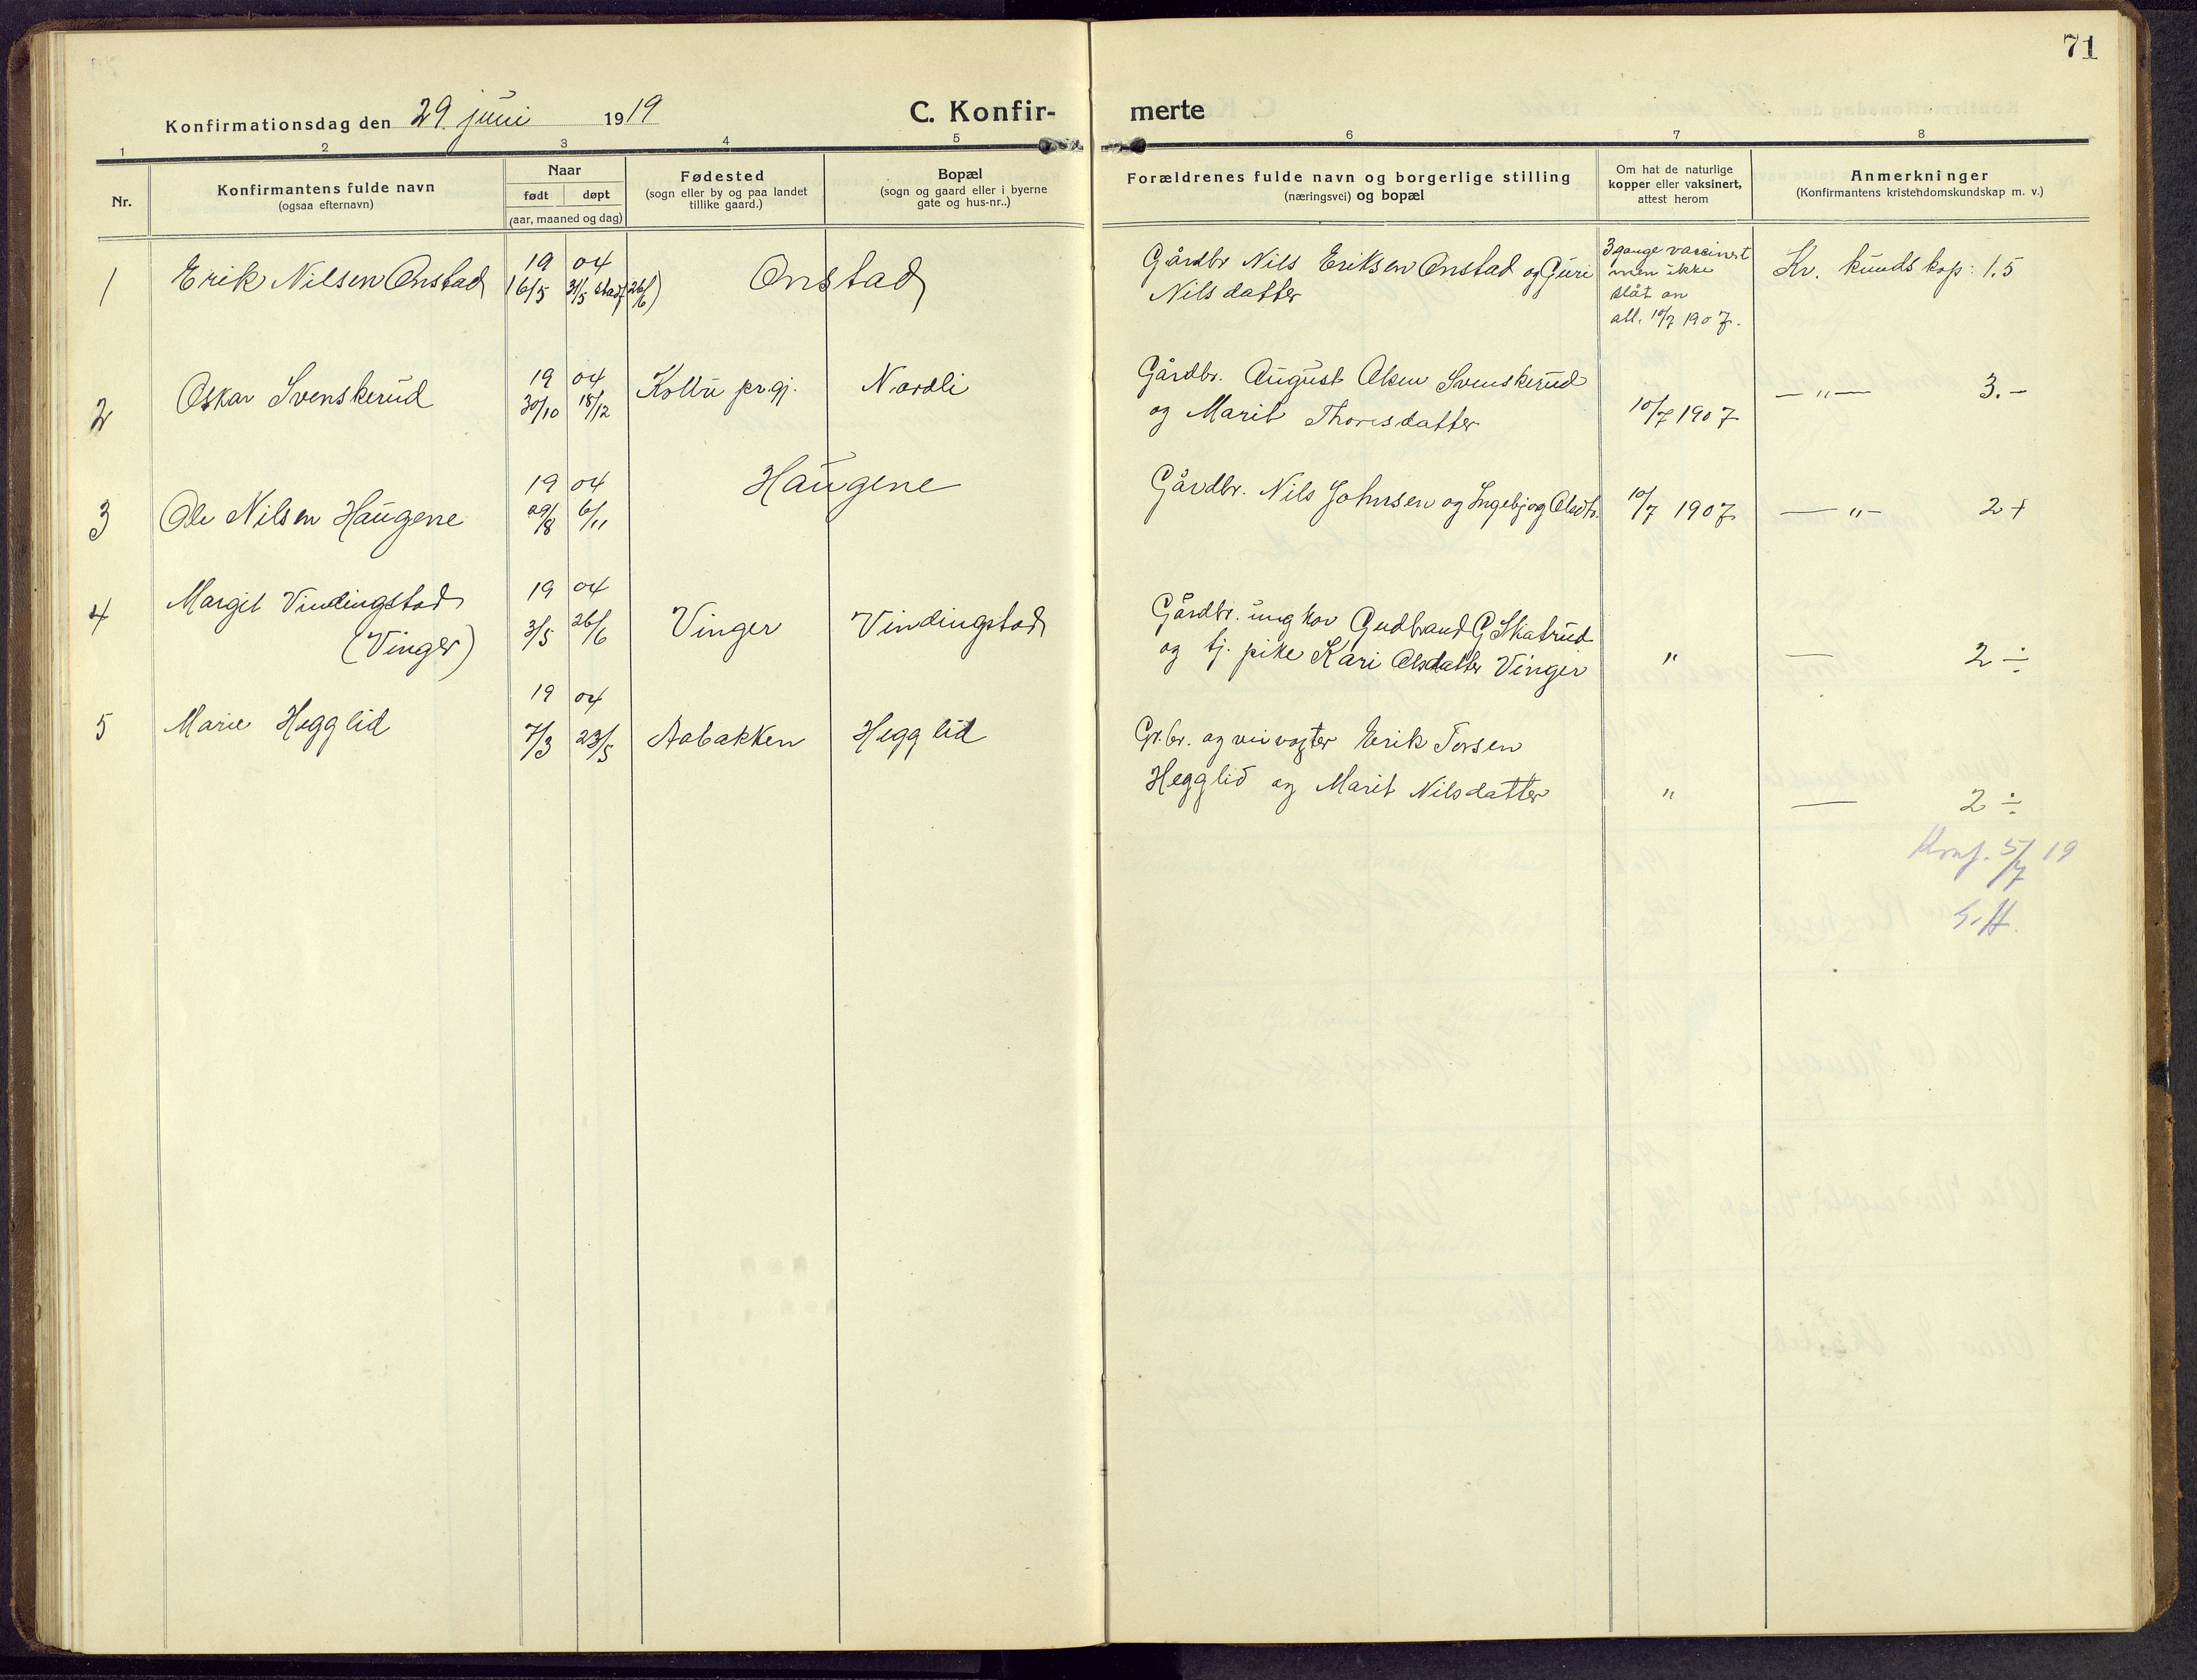 71
Konfirmationsdag den 29. juni 1919
C. Konfir-
merte
1 2 3 4 5 6 7 8
Nr.
Konfirmantens fulde navn
(ogsaa efternavn)
Naar
født døpt
(aar, maaned og dag)
Fødested
(sogn eller by og paa landet
tillike gaard.)
Bopæl
(sogn og gaard eller i byerne
gate og hus-nr..)
Forældrenes fulde navn og borgerlige stilling
(næringsvei) og bopæl
Om hat de naturlige
kopper eller vaksinert,
attest herom
Anmerkninger
(Konfirmantens kristendomskundskap m. v.)
1 Erik Nilsen Onstad 19 04 16/5 31/5 stadf 26/6) Onstad
Gårdbr Nils Eriksen Onstad og Guri
Nilsdatter
3 gange vaccinert
men ikke
slåt an
att. 10/7 1907.
Kr. kundskap: 1.5
2 Oskar Svenskerud 19 04 30/10 18/12 Kolbu prgj. Nordli
Gårdbr. August Olsen Svenskerud
og Marit Thoresdatter
10/7 1907 — " — 3.-
3 Ole Nilsen Haugene 19 04 29/8 6/11 Haugene
Gårdbr. Nils Johnsen og Ingebjog Olsdtr.
10/7 1907 — " — 2+
4 Margit Vindingstad
(Vinger)
19 04 3/5 26/6 Vinger Vindingstad
Gårdbr. ungkar Gudbrand G Skatrud
og tj. pike Kari Olsdatter Vinger
" — 2 ÷
5 Marie Hegglid 19 04 7/3 23/5 Aabakken Hegglid
Gr.br. og veivogter Erik Torsen
Hegglid og Marit Nilsdatter
" — 2 ÷
Konf. 5/7 19
S.H.